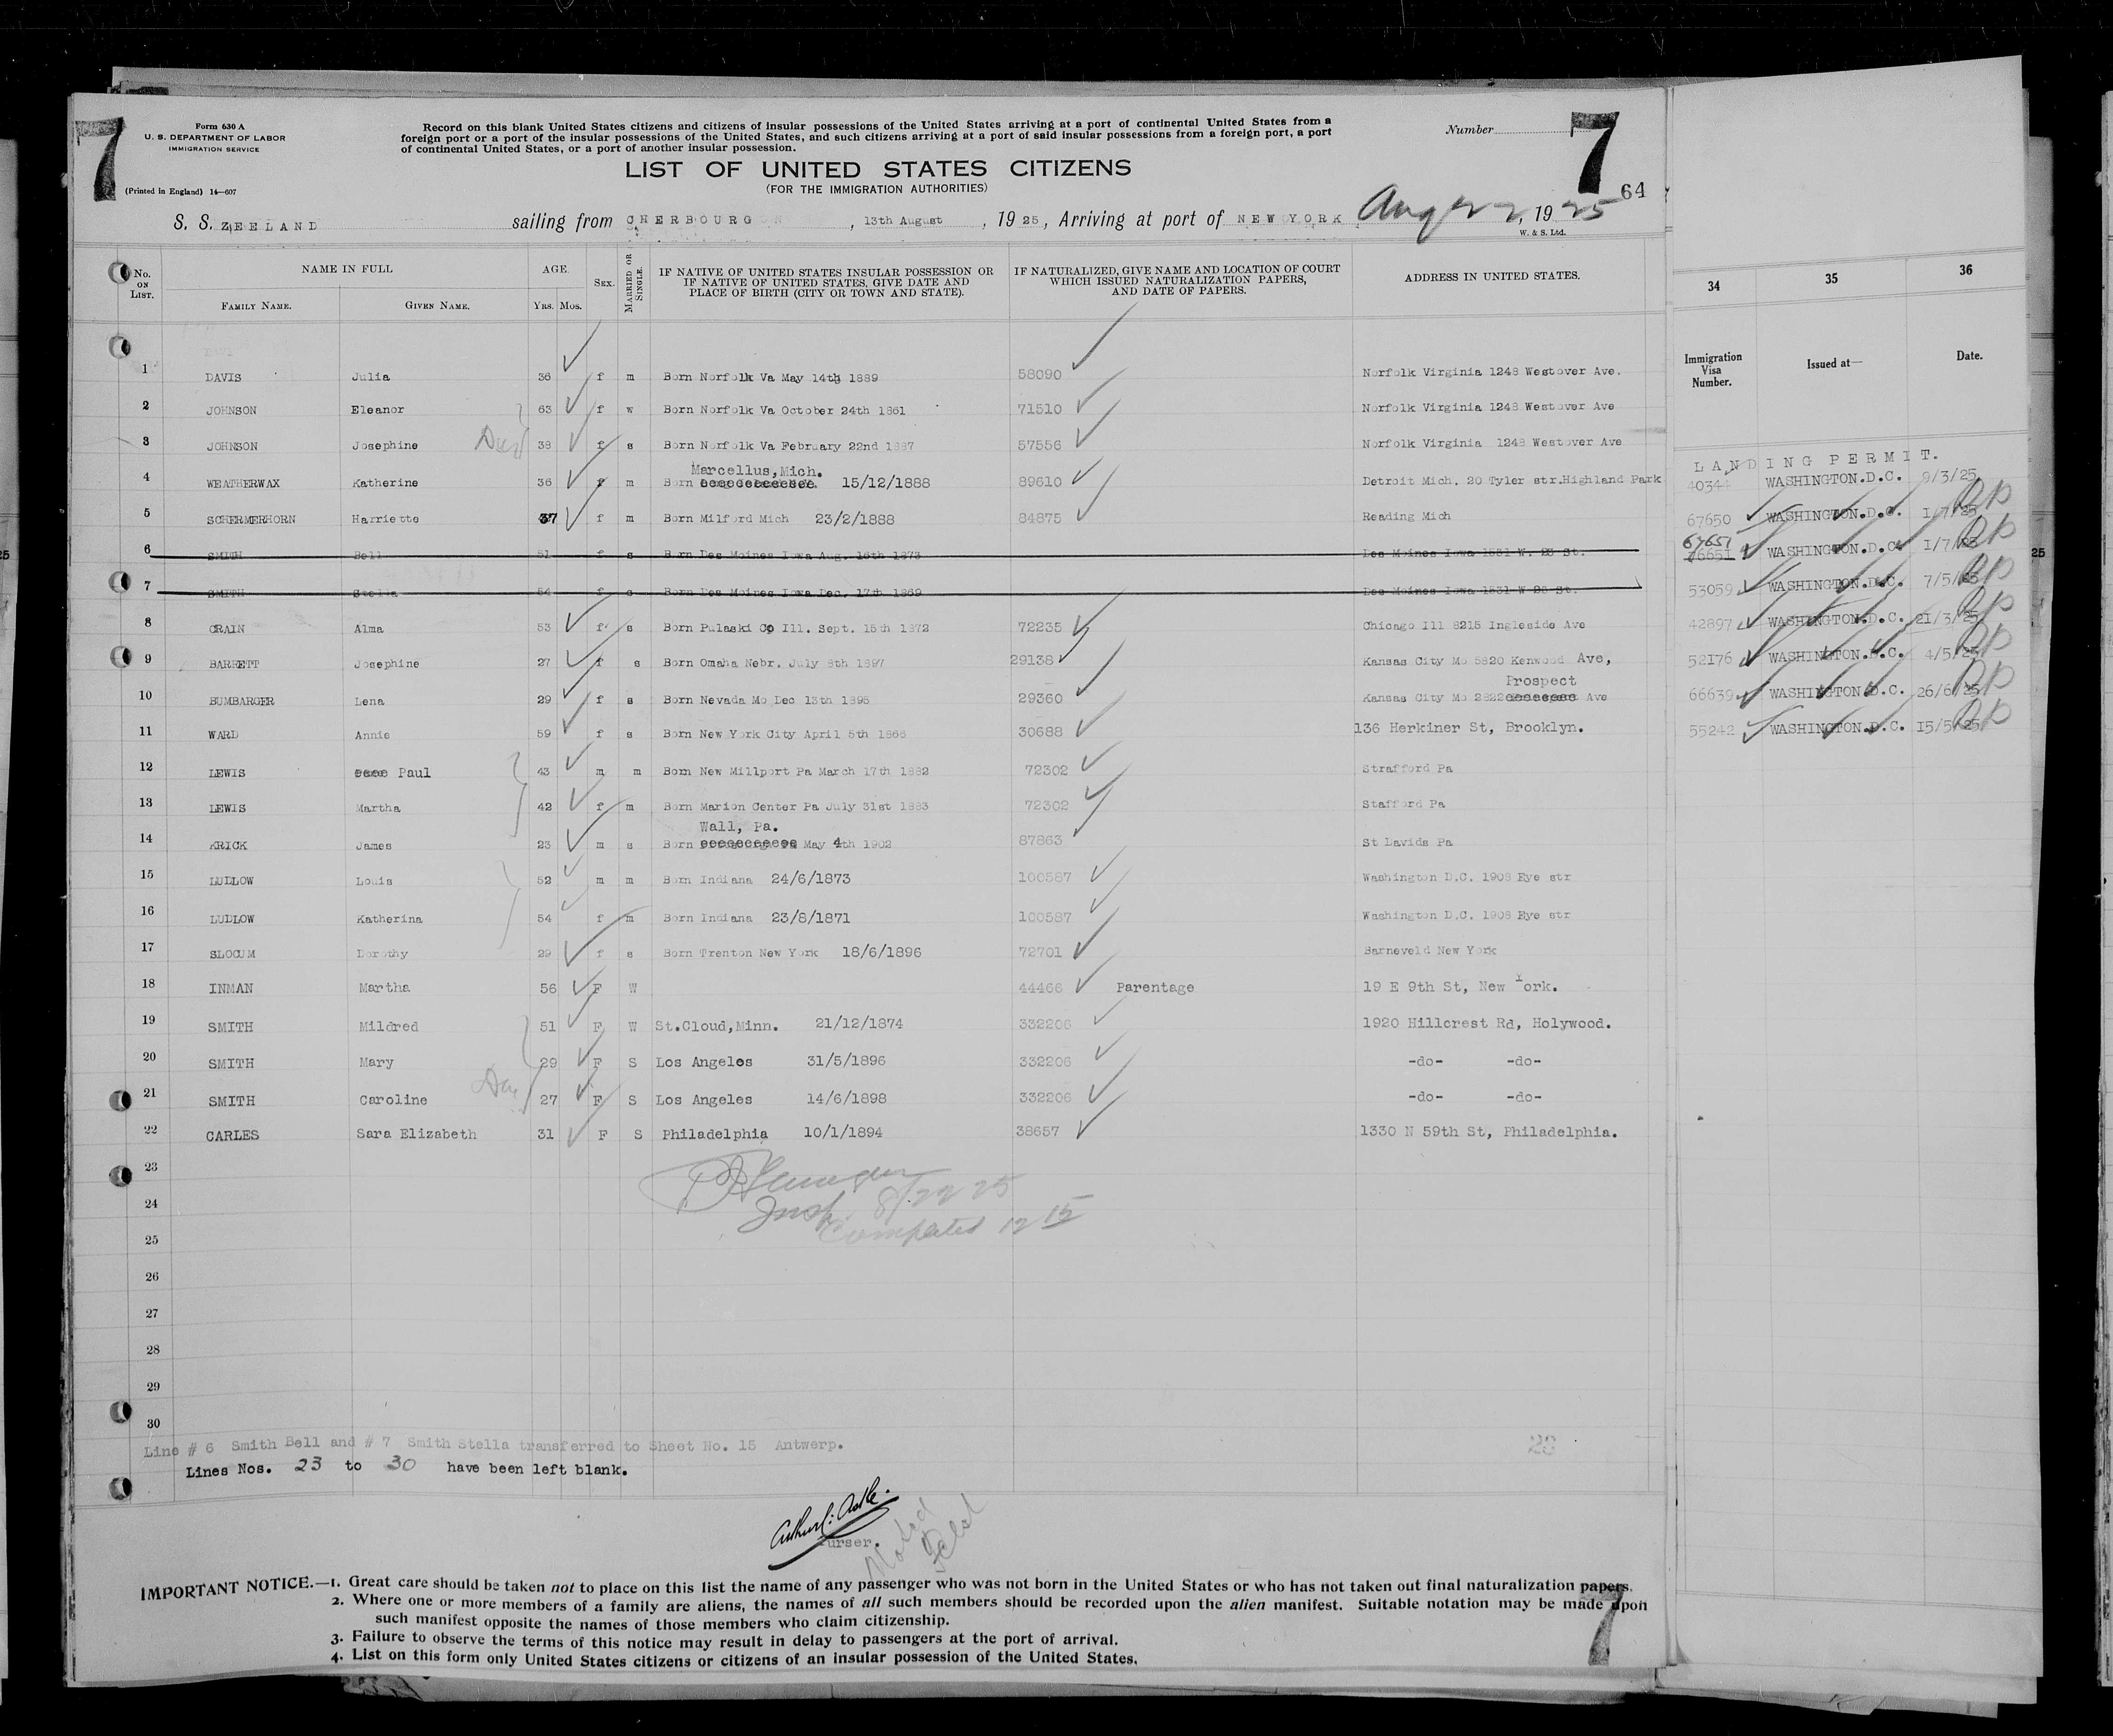 7
Form 630 A
U. S. DEPARTMENT OF LABOR
IMMIGRATION SERVICE
(Printed in England) 14—607
Record on this blank United States citizens and citizens of insular possessions of the United States arriving at a port of continental United States from a
foreign port or a port of the insular possessions of the United States, and such citizens arriving at a port of said insular possessions from a foreign port, a port
of continental United States, or a port of another insular possession.
LIST OF UNITED STATES CITIZENS
(FOR THE IMMIGRATION AUTHORITIES)
Number
7
64
S. S. ZEELAND sailing from CHERBOURG, 13th August, 1925, Arriving at port of NEW YORK Aug 22, 1925
W. & S. Ltd.
No. ON LIST. NAME IN FULL AGE. SEX. MARRIED OR SINGLE. IF NATIVE OF UNITED STATES INSULAR POSSESSION OR IF NATIVE OF UNITED STATES, GIVE DATE AND PLACE OF BIRTH (CITY OR TOWN AND STATE). IF NATURALIZED, GIVE NAME AND LOCATION OF COURT WHICH ISSUED NATURALIZATION PAPERS, AND DATE OF PAPERS. ADDRESS IN UNITED STATES.
FAMILY NAME. GIVEN NAME. YRS. MOS.
1 DAVIS Julia 36 f m Born Norfolk Va May 14th 1889 58090 Norfolk Virginia 1248 Westover Ave.
2 JOHNSON Eleanor 63 f w Born Norfolk Va October 24th 1861 71510 Norfolk Virginia 1248 Westover Ave
3 JOHNSON Josephine 38 f s Born Norfolk Va February 22nd 1887 57556 Norfolk Virginia 1248 Westover Ave
Marcellus,Mich.
4 WEATHERWAX Katherine 36 f m Born 15/12/1888 89610 Detroit Mich. 20 Tyler str.Highland Park
5 SCHERMERHORN Harriette 37 f m Born Milford Mich 23/2/1888 84875 Reading Mich
6 SMITH Bell 51 f s Born Des Moines Iowa Aug. 16th 1873 Des Moines Iowa 1531 W. 28 St.
7 SMITH Stella 54 f s Born Des Moines Iowa Dec. 17th 1869 Des Moines Iowa 1531 W 28 St.
8 CRAIN Alma 53 f s Born Pulaski Co Ill. Sept. 15th 1872 72235 Chicago Ill 8215 Ingleside Ave
9 BARRETT Josephine 27 f s Born Omaha Nebr. July 8th 1897 29138 Kansas City Mo 5820 Kenwood Ave,
Prospect
10 BUMBARGER Lena 29 f s Born Nevada Mo Dec 13th 1895 29360 Kansas City Mo 2822 Ave
11 WARD Annie 59 f s Born New York City April 5th 1866 30688 136 Herkiner St, Brooklyn.
12 LEWIS Paul 43 m m Born New Millport Pa March 17th 1882 72302 Strafford Pa
13 LEWIS Martha 42 f m Born Marion Center Pa July 31st 1883 72302 Stafford Pa
Wall, Pa.
14 KRICK James 23 m s Born May 4th 1902 87863 St Davids Pa
15 LUDLOW Louis 52 m m Born Indiana 24/6/1873 100587 Washington D.C. 1908 Eye str
16 LUDLOW Katherina 54 f m Born Indiana 23/8/1871 100587 Washington D.C. 1908 Eye str
17 SLOCUM Dorothy 29 f s Born Trenton New York 18/6/1896 72701 Barneveld New York
18 INMAN Martha 56 F W 44466 Parentage 19 E 9th St, New York.
19 SMITH Mildred 51 F W St.Cloud,Minn. 21/12/1874 332206 1920 Hillcrest Rd, Holywood.
20 SMITH Mary 29 F S Los Angelos 31/5/1896 332206 -do- -do-
21 SMITH Caroline 27 F S Los Angeles 14/6/1898 332206 -do- -do-
22 CARLES Sara Elizabeth 31 F S Philadelphia 10/1/1894 38657 1330 N 59th St, Philadelphia.
23
24
Insp. 8/22 25
Completed 12 15
25
26
27
28
29
30
Line # 6 Smith Bell and # 7 Smith Stella transferred to Sheet No. 15 Antwerp.
Lines Nos. 23 to 30 have been left blank.
Purser.
IMPORTANT NOTICE.—1. Great care should be taken not to place on this list the name of any passenger who was not born in the United States or who has not taken out final naturalization papers.
2. Where one or more members of a family are aliens, the names of all such members should be recorded upon the alien manifest. Suitable notation may be made upon
such manifest opposite the names of those members who claim citizenship.
3. Failure to observe the terms of this notice may result in delay to passengers at the port of arrival.
4. List on this form only United States citizens or citizens of an insular possession of the United States.
7
34 35 36
Immigration Visa Number. Issued at— Date.
LANDING PERMIT.
40344 WASHINGTON.D.C. 9/3/25
67650 WASHINGTON.D.C. I/7/25
67651
WASHINGTON.D.C. I/7/25
53059 WASHINGTON.D.C. 7/5/25
42897 WASHINGTON.D.C. 21/3/25
52176 WASHINGTON.D.C. 4/5/25
66639 WASHINGTON D.C. 26/6/25
55242 WASHINGTON.D.C. I5/5/25
25